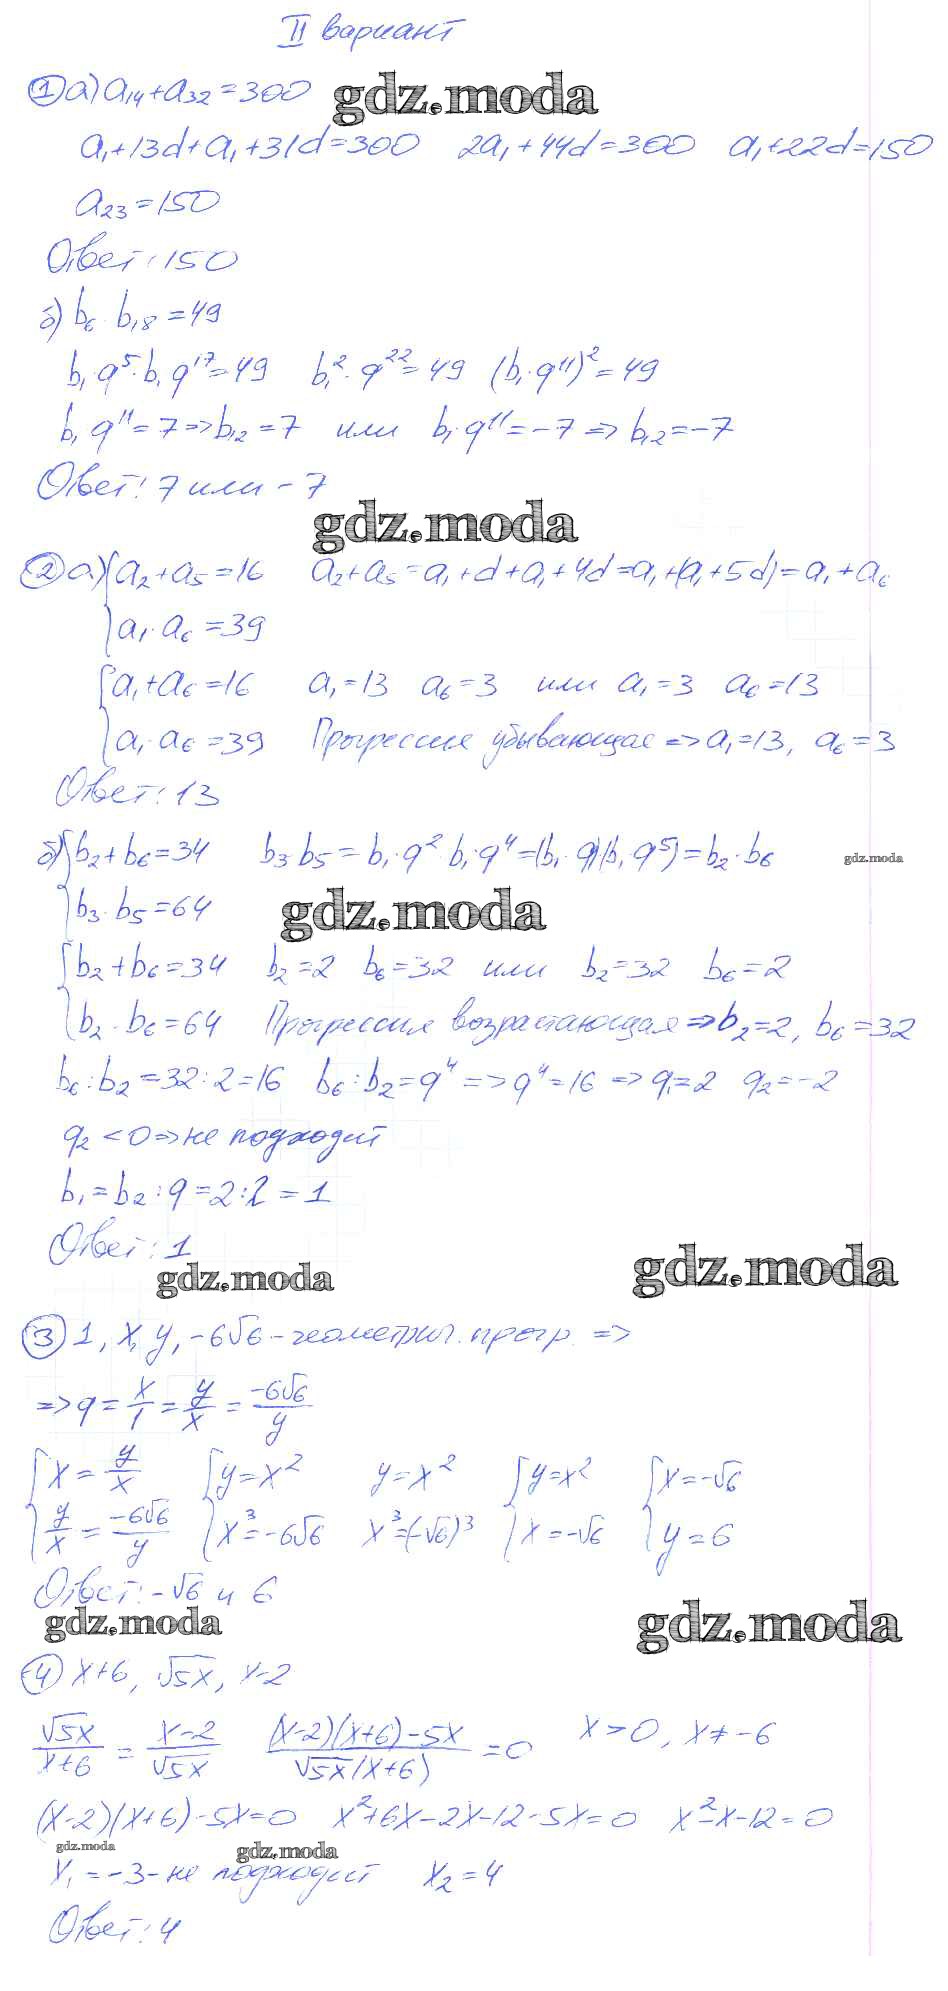 II вариант
① а) a₁₄+a₃₂=300 gdz.moda
a₁+13d+a₁+31d=300 2a₁+44d=300 a₁+22d=150
a₂₃=150
Ответ: 150
б) b₆·b₁₈=49
b₁·q⁵·b₁q¹⁷=49 b₁²·q²²=49 (b₁·q¹¹)²=49
b₁q¹¹=7=>b₁₂=7 или b₁·q¹¹=-7=>b₁₂=-7
Ответ: 7 или -7
gdz.moda
② а) {a₂+a₅=16 a₂+a₅=a₁+d+a₁+4d=a₁+(a₁+5d)=a₁+a₆
{a₁·a₆=39
{a₁+a₆=16 a₁=13 a₆=3 или a₁=3 a₆=13
{a₁·a₆=39 Прогрессия убывающая=>a₁=13, a₆=3
Ответ: 13
б) {b₂+b₆=34 b₃·b₅=b₁·q²·b₁·q⁴=(b₁·q)(b₁·q⁵)=b₂·b₆ gdz.moda
{b₃·b₅=64 gdz.moda
{b₂+b₆=34 b₂=2 b₆=32 или b₂=32 b₆=2
{b₂·b₆=64 Прогрессия возрастающая=>b₂=2, b₆=32
b₆:b₂=32:2=16 b₆:b₂=q⁴=>q⁴=16=>q₁=2 q₂=-2
q₂<0=>не подходит
b₁=b₂:q=2:2=1
Ответ: 1
gdz.moda gdz.moda
③ 1, x, y, -6√6-геометрич. прогр. =>
=>q=x/1=y/x=-6√6/y
{x=y/x {y=x² y=x² {y=x² {x=-√6
{y/x=-6√6/y {x³=-6√6 x³=(-√6)³ {x=-√6 {y=6
Ответ: -√6 и 6
gdz.moda gdz.moda
④ x+6, √5x, x-2
√5x/(x+6)=(x-2)/√5x ((x-2)(x+6)-5x)/(√5x(x+6))=0 x>0, x≠-6
(x-2)(x+6)-5x=0 x²+6x-2x-12-5x=0 x²-x-12=0
gdz.moda gdz.moda
x₁=-3-не подходит x₂=4
Ответ: 4